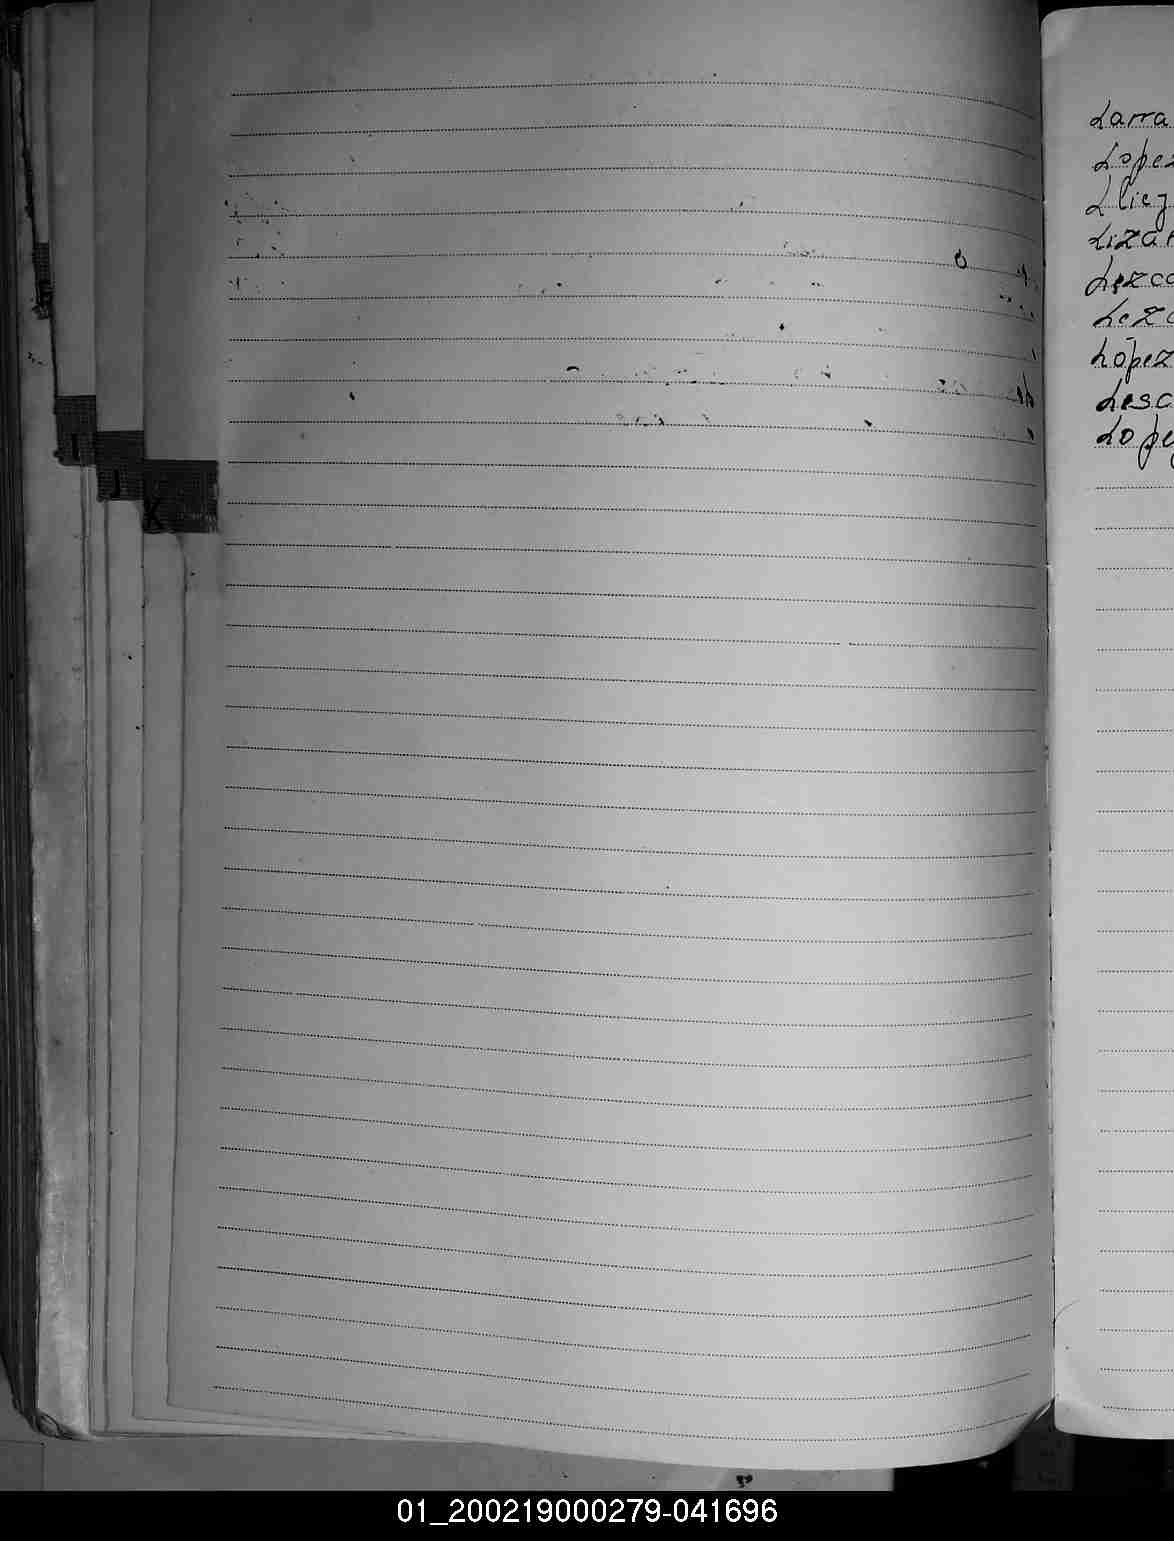 I
J
K
Larra
Lopez
Lizar
Lezca
Leza
López
Lesc
Lope
01_200219000279-041696